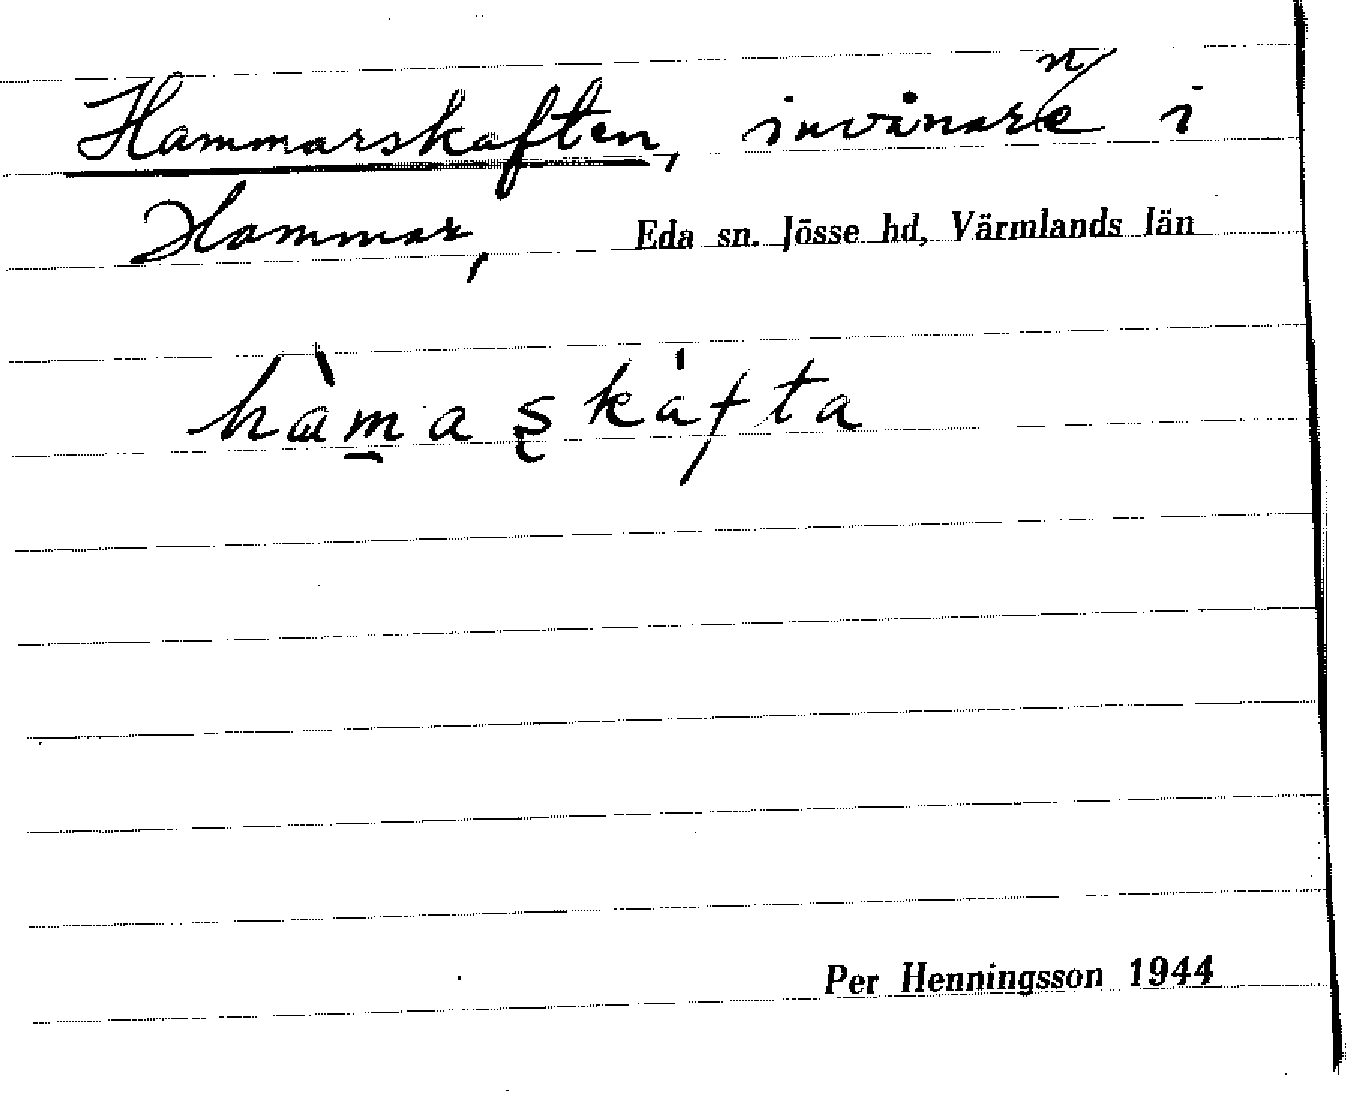 Hammarskaften, invånarne i
Hammar, Eda sn. Jösse hd, Värmlands län
hàm̲aʂkáfta
Per Henningsson 1944